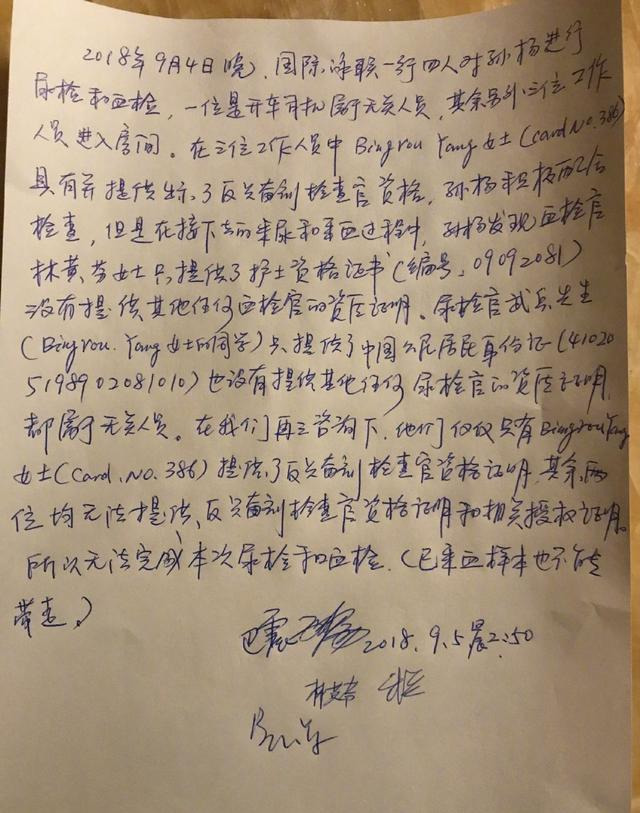 2018年9月4日晚、国际泳联一行四人对孙杨进行
尿检和血检,一位是开车司机属于无关人员,其余另外三位工作
人员进入房间。在三位工作人员中Bingrou Yang女士(card No.386)
具有并提供出示了反兴奋剂检查官资格,孙杨积极配合
检查,但是在接下去的采尿和采血过程中,孙杨发现血检官
林 女士只提供了护士资格证书(编号:09092081)
没有提供其他任何血检官的资质证明。尿检官 先生
(Bingrou.Yang女士的同学)只提供了中国公民居民身份证(41020
5198902081010)也没有提供其他任何尿检官的资质证明,
都属于无关人员。在我们再三咨询下,他们仅仅只有Bingrou Yang
女士(Card.No.386)提供了反兴奋剂检查官资格证明,其余两
位均无法提供反兴奋剂检查官资格证明和相关授权证明。
所以无法完成本次尿检和血检.(已采血样本也不能
带走。)
2018.9.5晨2:50